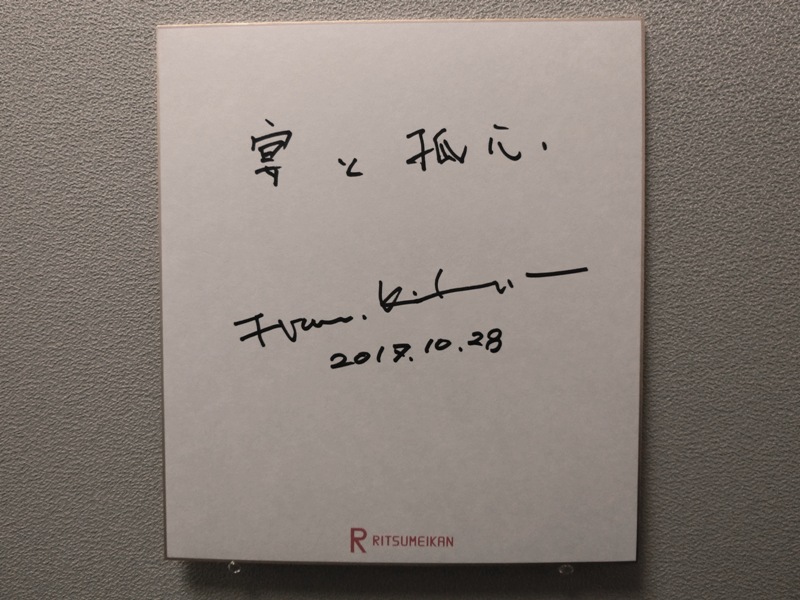 宴と孤心.
Fram. Kitagawa
2017.10.28
R RITSUMEIKAN